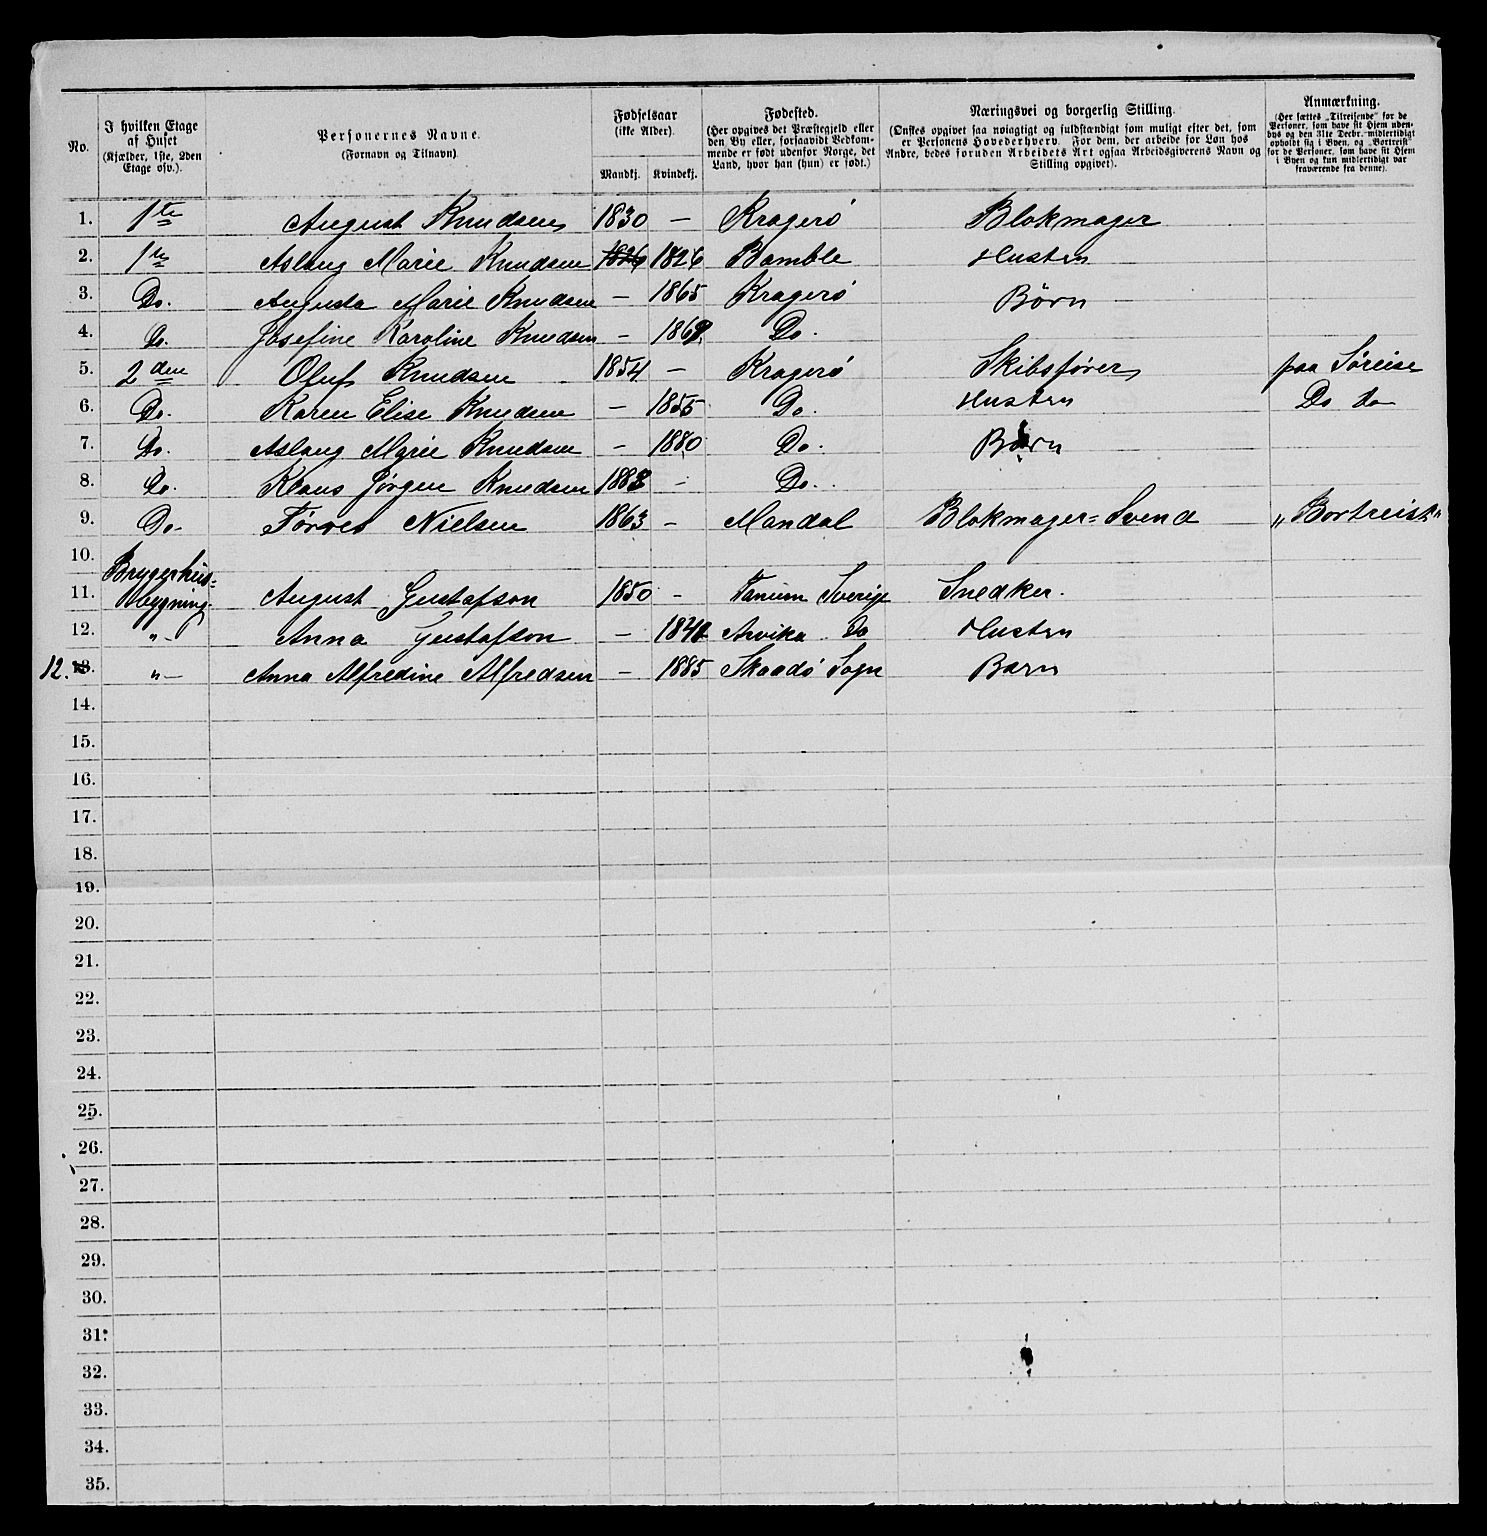 No. I hvilken Etage af Huset (Kjælder, 1ste, 2den Etage osv.). Personernes Navne. (Fornavn og Tilnavn) Fødselsaar (ikke Alder). Mandkj. Kvindekj. Fødested. (Her opgives det Præstegjeld eller den By eller, forsaavidt Vedkommende er født udenfor Norge, det Land, hvor han (hun) er født.) Næringsvei og borgerlig Stilling. (Ønskes opgivet saa nøiagtigt og fuldstændigt som muligt efter det, som er Personens Hovederhverv. For dem, der arbeide for Løn hos Andre, bedes foruden Arbeidets Art ogsaa Arbeidsgiverens Navn og Stilling opgivet). Anmærkning. (Her sættes „Tilreisende" for de Personer, som have sit Hjem udenbys og den 31te Decbr. midlertidigt opholdt sig i Byen, og „Bortreist" for de Personer, som have sit Hjem i Byen og kun midlertidigt var fraværende fra denne).
1. 1ste August Knudsen 1830 — Kragerø Blokmager
2. 1ste Aslaug Marie Knudsen 1826 1826 Bamble Hustru
3. Do. Augusta Marie Knudsen — 1865 Kragerø Børn
4. Do. Josefine Karoline Knudsen — Do.
5. 2den Oluf Knudsen 1854 — Kragerø Skibsfører paa Søreise
6. Do. Karen Elise Knudsen — 1855 Do. Hustru Do do
7. Do. Aslaug Marie Knudsen — 1880 Do. Børn
8. Do. Klaus Jørgen Knudsen 1883 — Do.
9. Do. Nielsen 1863 — Mandal Blokmager-Svend „Bortreist"
10. Bryggerhus=
11. bygning. August Gustafson 1850 — Tanum Sverige Snedker.
12. "— Anna Gustafson — Arvika Do Hustru
12. 13. "— Anna Alfredine Alfredsen — 1885 Skaadø Sogn Barn
14.
15.
16.
17.
18.
19.
20.
21.
22.
23.
24.
25.
26.
27.
28.
29.
30.
31.
32.
33.
34.
35.